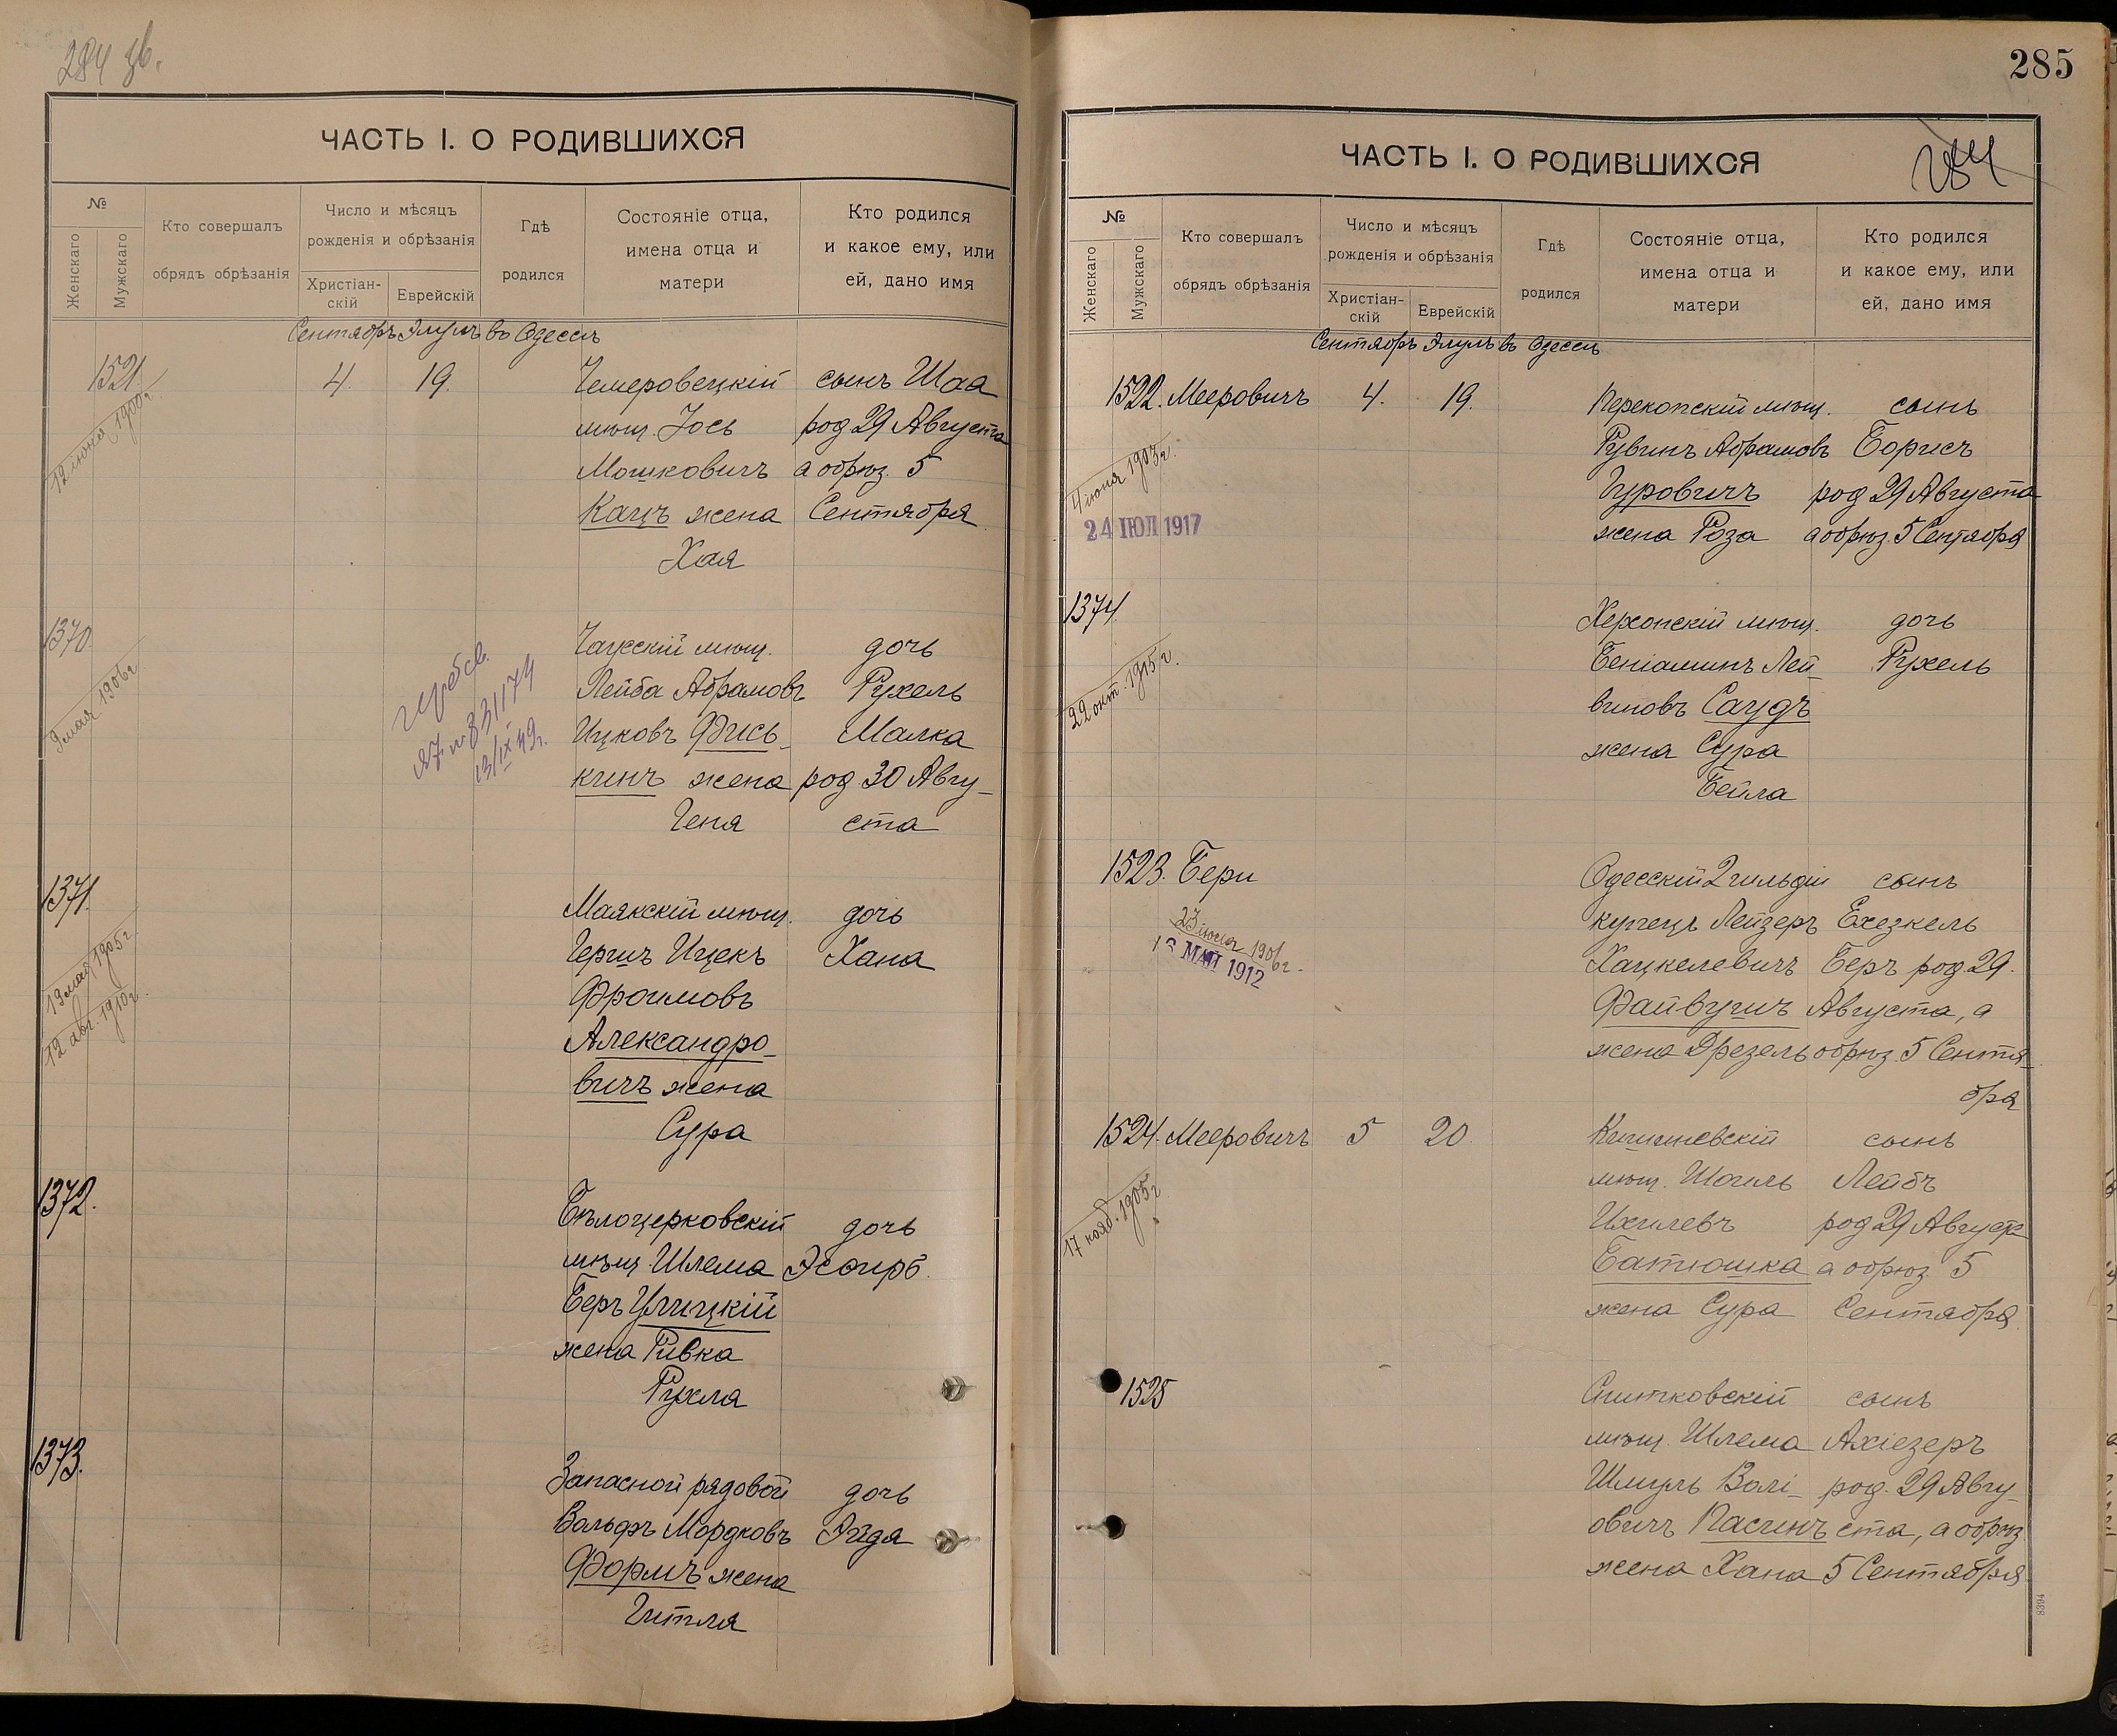 284 зв.
ЧАСТЬ I. О РОДИВШИХСЯ
№
Женскаго
Мужскаго
Кто совершалъ
обрядъ обрѣзанія
Число и мѣсяцъ
рожденія и обрѣзанія
Христіан-
скій
Еврейскій
Гдѣ
родился
Состояніе отца,
имена отца и
матери
Кто родился
и какое ему, или
ей, дано имя
Сентябрь Элулъ въ Одессѣ
1521. 4. 19. Чемеровецкій сынъ Шая
мѣщ. Іось род 29 Августа
Мошковичъ а обрѣз. 5
Кацъ жена Сентября
Хая
12 іюня 1900 г.
1370. Чаусскій мѣщ. дочь
Лейба Абрамовъ Рухель
Ицковъ Фись- Малка
кинъ жена род 30 Авгу-
Геня ста
9 мая 1906 г
831174
13/IX 49 г.
1371. Маякскій мѣщ. дочь
Гершъ Ицекъ Хана
Фроимовъ
Александро-
вичъ жена
Сура
19 мая 1905 г.
12 авг. 1910 г.
1372. Бѣлоцерковскій дочь
мѣщ. Шлема Эсѳирь
Беръ Улицкій
жена Ривка
Рухла
1373. Запасной рядовой дочь
Вольфъ Мордковъ Эйдя
Формъ жена
Гитля
285
284
ЧАСТЬ I. О РОДИВШИХСЯ
№
Женскаго
Мужскаго
Кто совершалъ
обрядъ обрѣзанія
Число и мѣсяцъ
рожденія и обрѣзанія
Христіан-
скій
Еврейскій
Гдѣ
родился
Состояніе отца,
имена отца и
матери
Кто родился
и какое ему, или
ей, дано имя
Сентябрь Элулъ въ Одессѣ
1522. Мееровичъ 4. 19. Перекопскій мѣщ. сынъ
Рувинъ Абрамовъ Борисъ
Гуровичъ род 29 Августа
жена Роза а обрѣз. 5 Сентября
4 іюня 1903 г.
24 ІЮЛ 1917
1374. Херсонскій мѣщ. дочь
Беніаминъ Лей- Рухель
виковъ Саудъ
жена Сура
Бейла
22 окт. 1915 г.
1523. Бери Одесскій 2 гильдіи сынъ
купецъ Лейзеръ Ехезкель
Хацкелевичъ Беръ род. 29.
Файвушъ Августа, а
жена Дрезель обрѣз. 5 Сентя-
бря
1906 г.
МАЙ 1912
1524. Мееровичъ 5 20. Кишиневскій сынъ
мѣщ. Шоиль Лейбъ
Ихилевъ род 29 Август
Батюшка а обрѣз. 5
жена Сура Сентября.
17 нояб. 1905 г
1525 Ситковскій сынъ
мѣщ. Шлема Ахіезеръ
Шмуль Волі- род. 29 Авгу-
овичъ Пасинъ ста, а обрѣз
жена Хана 5 Сентября
8394